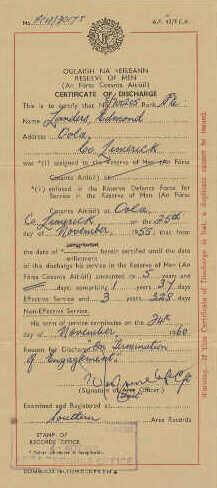 A.F. 43/F.C.A.
No.
OGLAIGH NA hEIREANN
RESERVE OF MEN
(An Forsa Cosanta Aitiuil)
CERTIFICATE OF DISCHARGE
This is to certify that No. Rank Pte.
Name Landers, Edmond
Address Oola,
Co. Limerick
was *(i) assigned to the Reserve of Men (An Forsa
Cosanta Aitiuil) on
*(ii) enlisted in the Reserve Defence Force for
Service in the Reserve of Men (An Forsa
Cosanta Aitiuil) at Oola,
Co. Limerick on the 25th
day of November, 1955 that from
the date of herein certified until the date
enlistment
of this discharge his service in the Reserve of Men (An
Forsa Cosanta Aitiuil) amounted to 5 years and
days, comprising 1 years 37 days
Effective Service and 3 years 328 days
Non-Effective Service.
His term of service terminates on the 24th
of November, 1960
Reason for Discharge "On Termination
of Engagement".
(Signature of Area Officer)
Capt
Examined and Registered at
Southern Area Records
STAMP OF
RECORDS OFFICE
* Delete whichever is inapplicable.
Warning. If this Certificate of Discharge is lost, a duplicate cannot be issued.